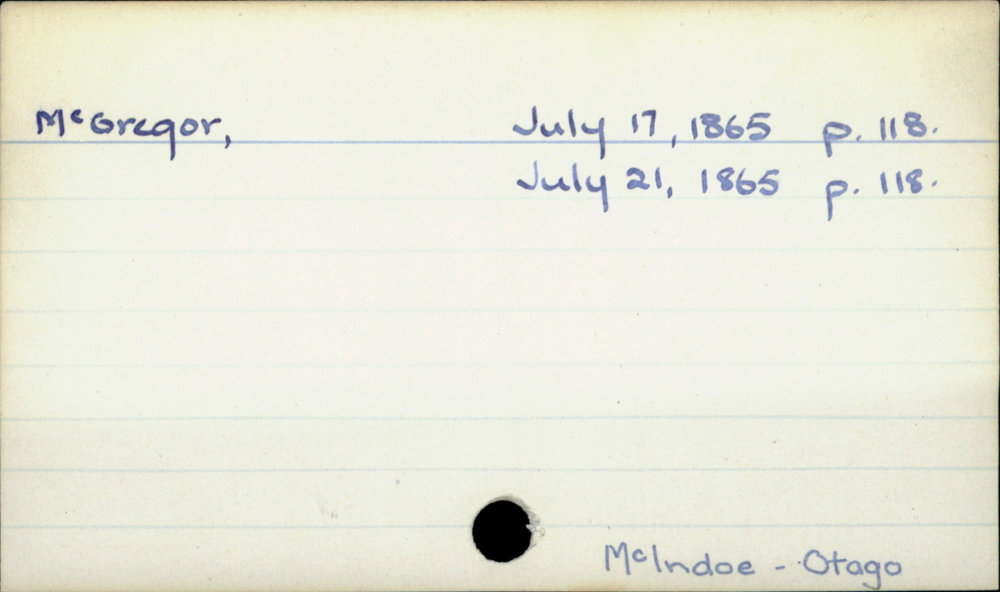 McGregor, July 17, 1865 p. 118.
July 21, 1865 p. 118.
McIndoe - Otago